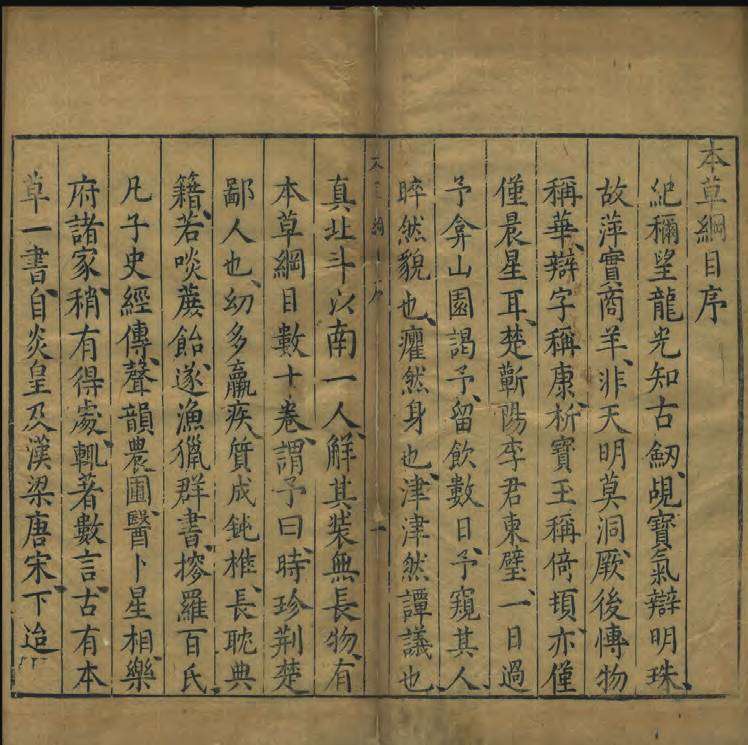 本草綱目序
紀稱望龍光知古劒、覘寶氣辯明珠、
故萍實商羊、非天明莫洞、厥後博物
稱華、辯字稱康、析寶玉稱倚頓、亦僅
僅晨星耳、楚蘄陽李君東璧、一日過
予弇山園謁予、留飲數日、予窺其人、
睟然貌也、癯然身也、津津然譚議也
真北斗以南一人、解其装無長物、有
本草綱目數十卷、謂予曰、時珍荆楚
鄙人也、幼多羸疾、質成鈍椎、長耽典
籍、若啖蔗飴、遂漁獵群書、搜羅百氏、
凡子史經傳、聲韻農圃、醫卜星相、樂
府諸家、稍有得處、輒著數言、古有本
草一書、自炎皇及漢梁唐宋、下迨